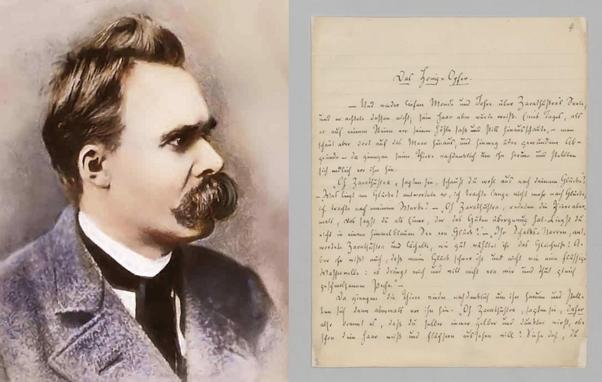 4
Das Honig-Opfer.
— Und wieder liefen Monde und Jahre über Zarathustra's Seele,
und er achtete dessen nicht; sein Haar aber wurde weiß. Eines Tages, als
er auf einem Steine vor seiner Höhle saß und still hinausschaute, — man
schaut aber dort auf das Meer hinaus, und hinweg über gewundene Ab-
gründe — da giengen seine Thiere nachdenklich um ihn herum und stellten
sich endlich vor ihn hin.
„Oh Zarathustra, sagten sie, schaust du wohl aus nach deinem Glücke?“
— „Was liegt am Glücke! antwortete er, ich trachte lange nicht mehr nach Glücke,
ich trachte nach meinem Werke.“ — „Oh Zarathustra, redeten die Thiere aber-
mals, das sagst du als Einer, der des Guten übergenug hat. Liegst du
nicht in einem himmelblauen See von Glück?“ — „Ihr Schalks-Narren, ant-
wortete Zarathustra und lächelte, wie gut wähltet ihr das Gleichniß! A-
ber ihr wißt auch, daß mein Glück schwer ist und nicht wie eine flüssige
Wasserwelle: es drängt mich und will nicht von mir und thut gleich
geschmolzenem Peche.“ —
Da giengen die Thiere wieder nachdenklich um ihn herum und stell-
ten sich dann abermals vor ihn hin. „Oh Zarathustra, sagten sie, daher
also kommt es, daß du selber immer gelber und dunkler wirst, ob-
schon dein Haar weiß und flächsern aussehen will? Siehe doch, du